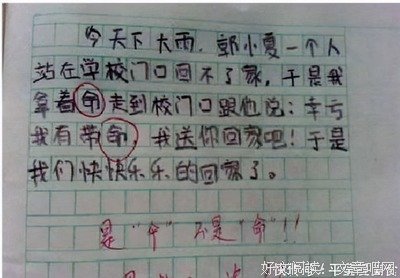 今天下大雨，郭小夏一个人
站在学校门口回不了家，于是我
拿着命走到校门口跟他说：幸亏
我有带命，我送你回家吧！于是
我们快快乐乐的回家了。
是“伞”不是“命”！！